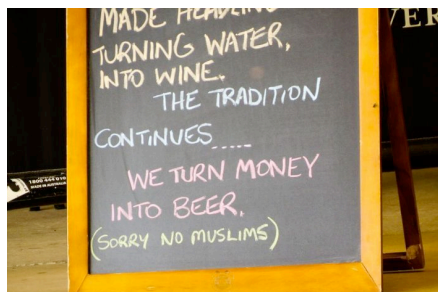 MADE HEADLINE
TURNING WATER,
INTO WINE.
THE TRADITION
CONTINUES.....
WE TURN MONEY
INTO BEER.
(SORRY NO MUSLIMS)
VER